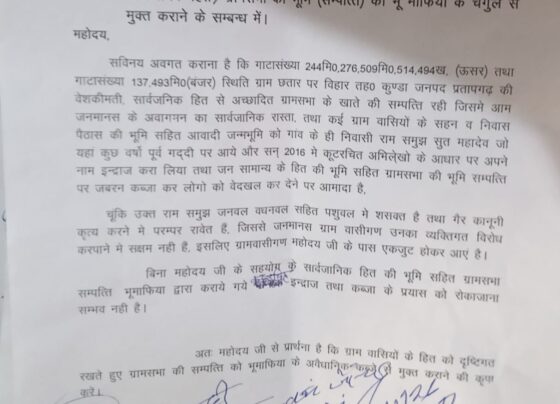 भूमि (सम्पत्ति) को भू माफिया के चंगुल से
मुक्त कराने के सम्बन्ध में।
महोदय,
सविनय अवगत कराना है कि गाटासंख्या 244मि0,276,509मि0,514,494ख, (ऊसर) तथा
गाटासंख्या 137,493मि0(बंजर) स्थिति ग्राम छतार पर विहार तह0 कुण्डा जनपद प्रतापगढ़ की
वेशकीमती, सार्वजनिक हित से अच्छादित ग्रामसभा के खाते की सम्पत्ति रही जिसमे आम
जनमानस के अवागमन का सार्वजानिक रास्ता, तथा कई ग्राम वासियों के सहन व निवास
पैठास की भूमि सहित आवादी जन्मभूमि को गांव के ही निवासी राम समुझ सुत महादेव जो
यहां कुछ वर्षो पूर्व गद्दी पर आये और सन् 2016 मे कूटरचित अभिलेखो के आधार पर अपने
नाम इन्द्राज करा लिया तथा जन सामान्य के हित की भूमि सहित ग्रामसभा की भूमि सम्पत्ति
पर जबरन कब्जा कर लोगो को वेदखल कर देने पर आमादा है,
चूंकि उक्त राम समुझ जनवल वधनवल सहित पशुवल मे शसक्त है तथा गैर कानूनी
कृत्य करने मे परम्पर रावेत है, जिससे जनमानस ग्राम वासीगण उनका व्यक्तिगत विरोध
करपाने मे सक्षम नही है, इसलिए ग्रामवासीगण महोदय जी के पास एकजुट होकर आए है।
बिना महोदय जी के सहयोग के सार्वजानिक हित की भूमि सहित ग्रामसभा
सम्पत्ति भूमाफिया द्वारा कराये गये इन्द्राज तथा कब्जा के प्रयास को रोकाजाना
सम्भव नही है।
अतः महोदय जी से प्रार्थना है कि ग्राम वासियों के हित को दृष्टिगत
रखते हुए ग्रामसभा की सम्पत्ति को भूमाफिया के अवैधानिक कब्जे से मुक्त कराने की कृपा
करें।